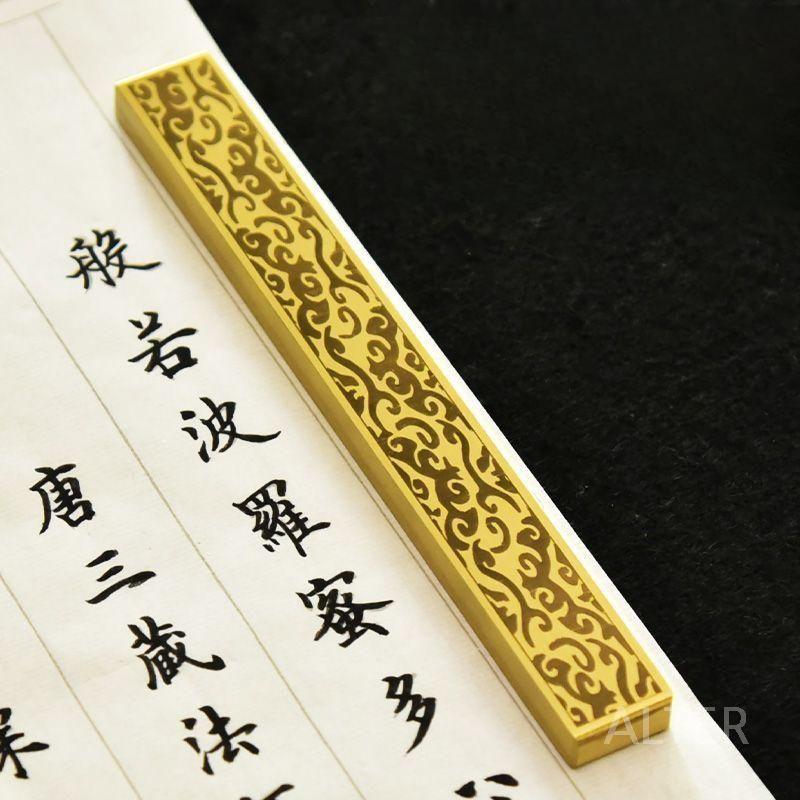 般若波羅蜜多
唐三藏法
ALTER